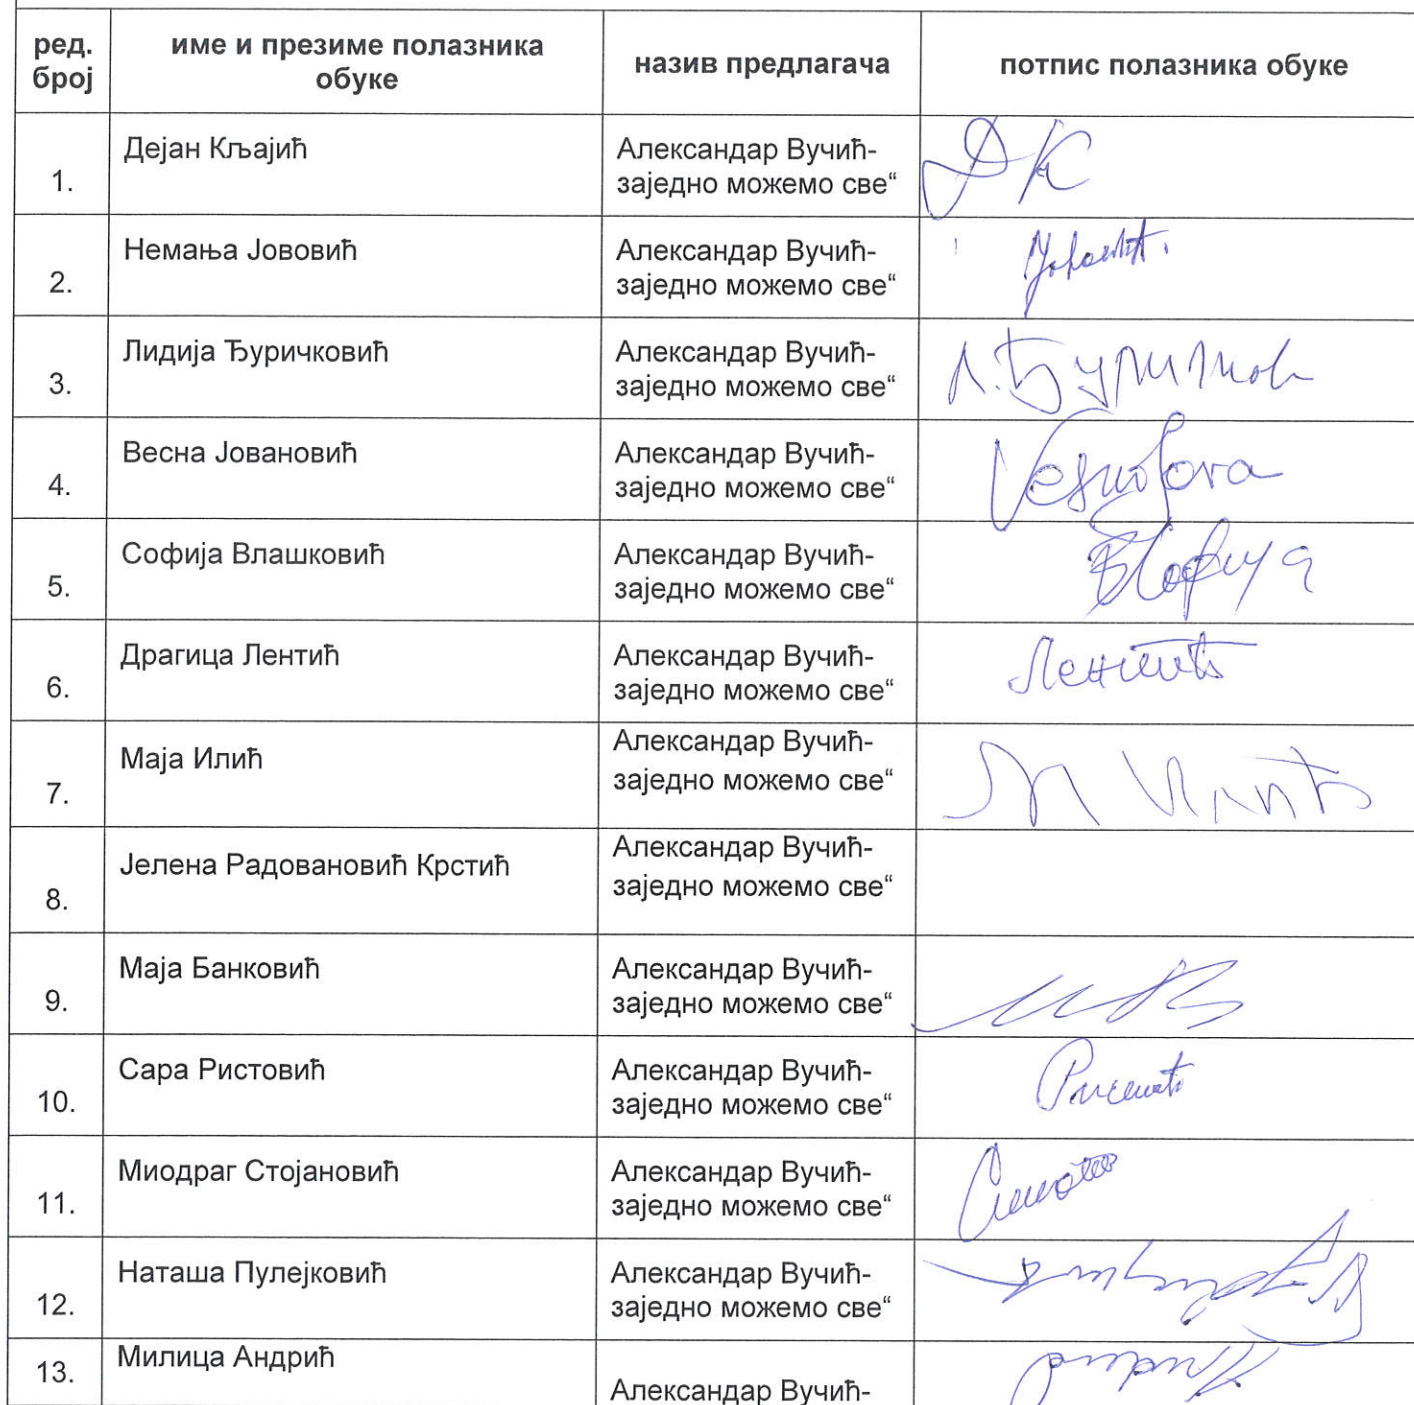 ред. број
име и презиме полазника обуке
назив предлагача
потпис полазника обуке
1.
Дејан Кљајић
Александар Вучић-
заједно можемо све“
ДК
2.
Немања Јововић
Александар Вучић-
заједно можемо све“
3.
Лидија Ђуричковић
Александар Вучић-
заједно можемо све“
4.
Весна Јовановић
Александар Вучић-
заједно можемо све“
5.
Софија Влашковић
Александар Вучић-
заједно можемо све“
6.
Драгица Лентић
Александар Вучић-
заједно можемо све“
Лентић
7.
Маја Илић
Александар Вучић-
заједно можемо све“
М Илић
8.
Јелена Радовановић Крстић
Александар Вучић-
заједно можемо све“
9.
Маја Банковић
Александар Вучић-
заједно можемо све“
10.
Сара Ристовић
Александар Вучић-
заједно можемо све“
11.
Миодраг Стојановић
Александар Вучић-
заједно можемо све“
12.
Наташа Пулејковић
Александар Вучић-
заједно можемо све“
13.
Милица Андрић
Александар Вучић-